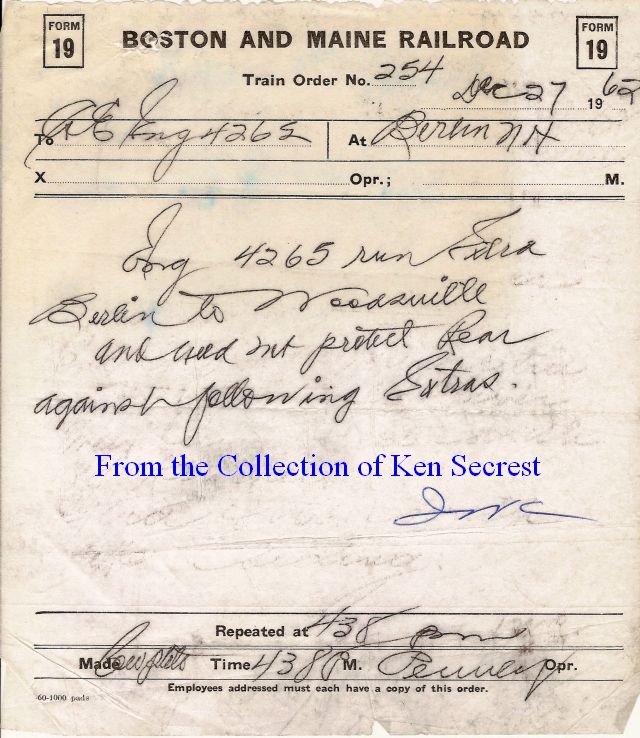 FORM 19
BOSTON AND MAINE RAILROAD
FORM 19
Train Order No. 254
Dec 27 1962
To C&E Eng 4265 At Berlin NH
X Opr.; M.
Eng 4265 run Extra
Berlin to Woodsville
and need not protect Rear
against following Extras.
From the Collection of Ken Secrest
Repeated at 438 pm
Made Complete Time 438 P M. Opr.
Employees addressed must each have a copy of this order.
60-1000 pads